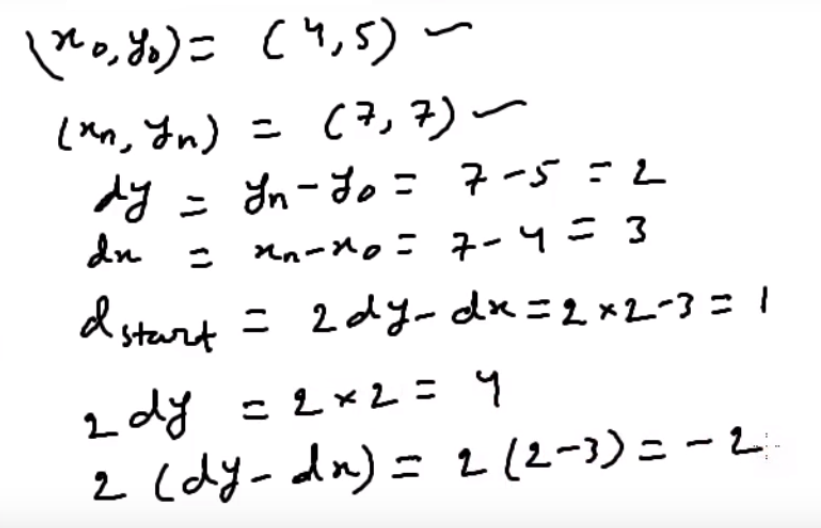 (x₀, y₀) = (4, 5)
(xₙ, yₙ) = (7, 7)
dy = yₙ - y₀ = 7 - 5 = 2
dx = xₙ - x₀ = 7 - 4 = 3
d start = 2dy - dx = 2 × 2 - 3 = 1
2dy = 2 × 2 = 4
2 (dy - dx) = 2 (2 - 3) = -2